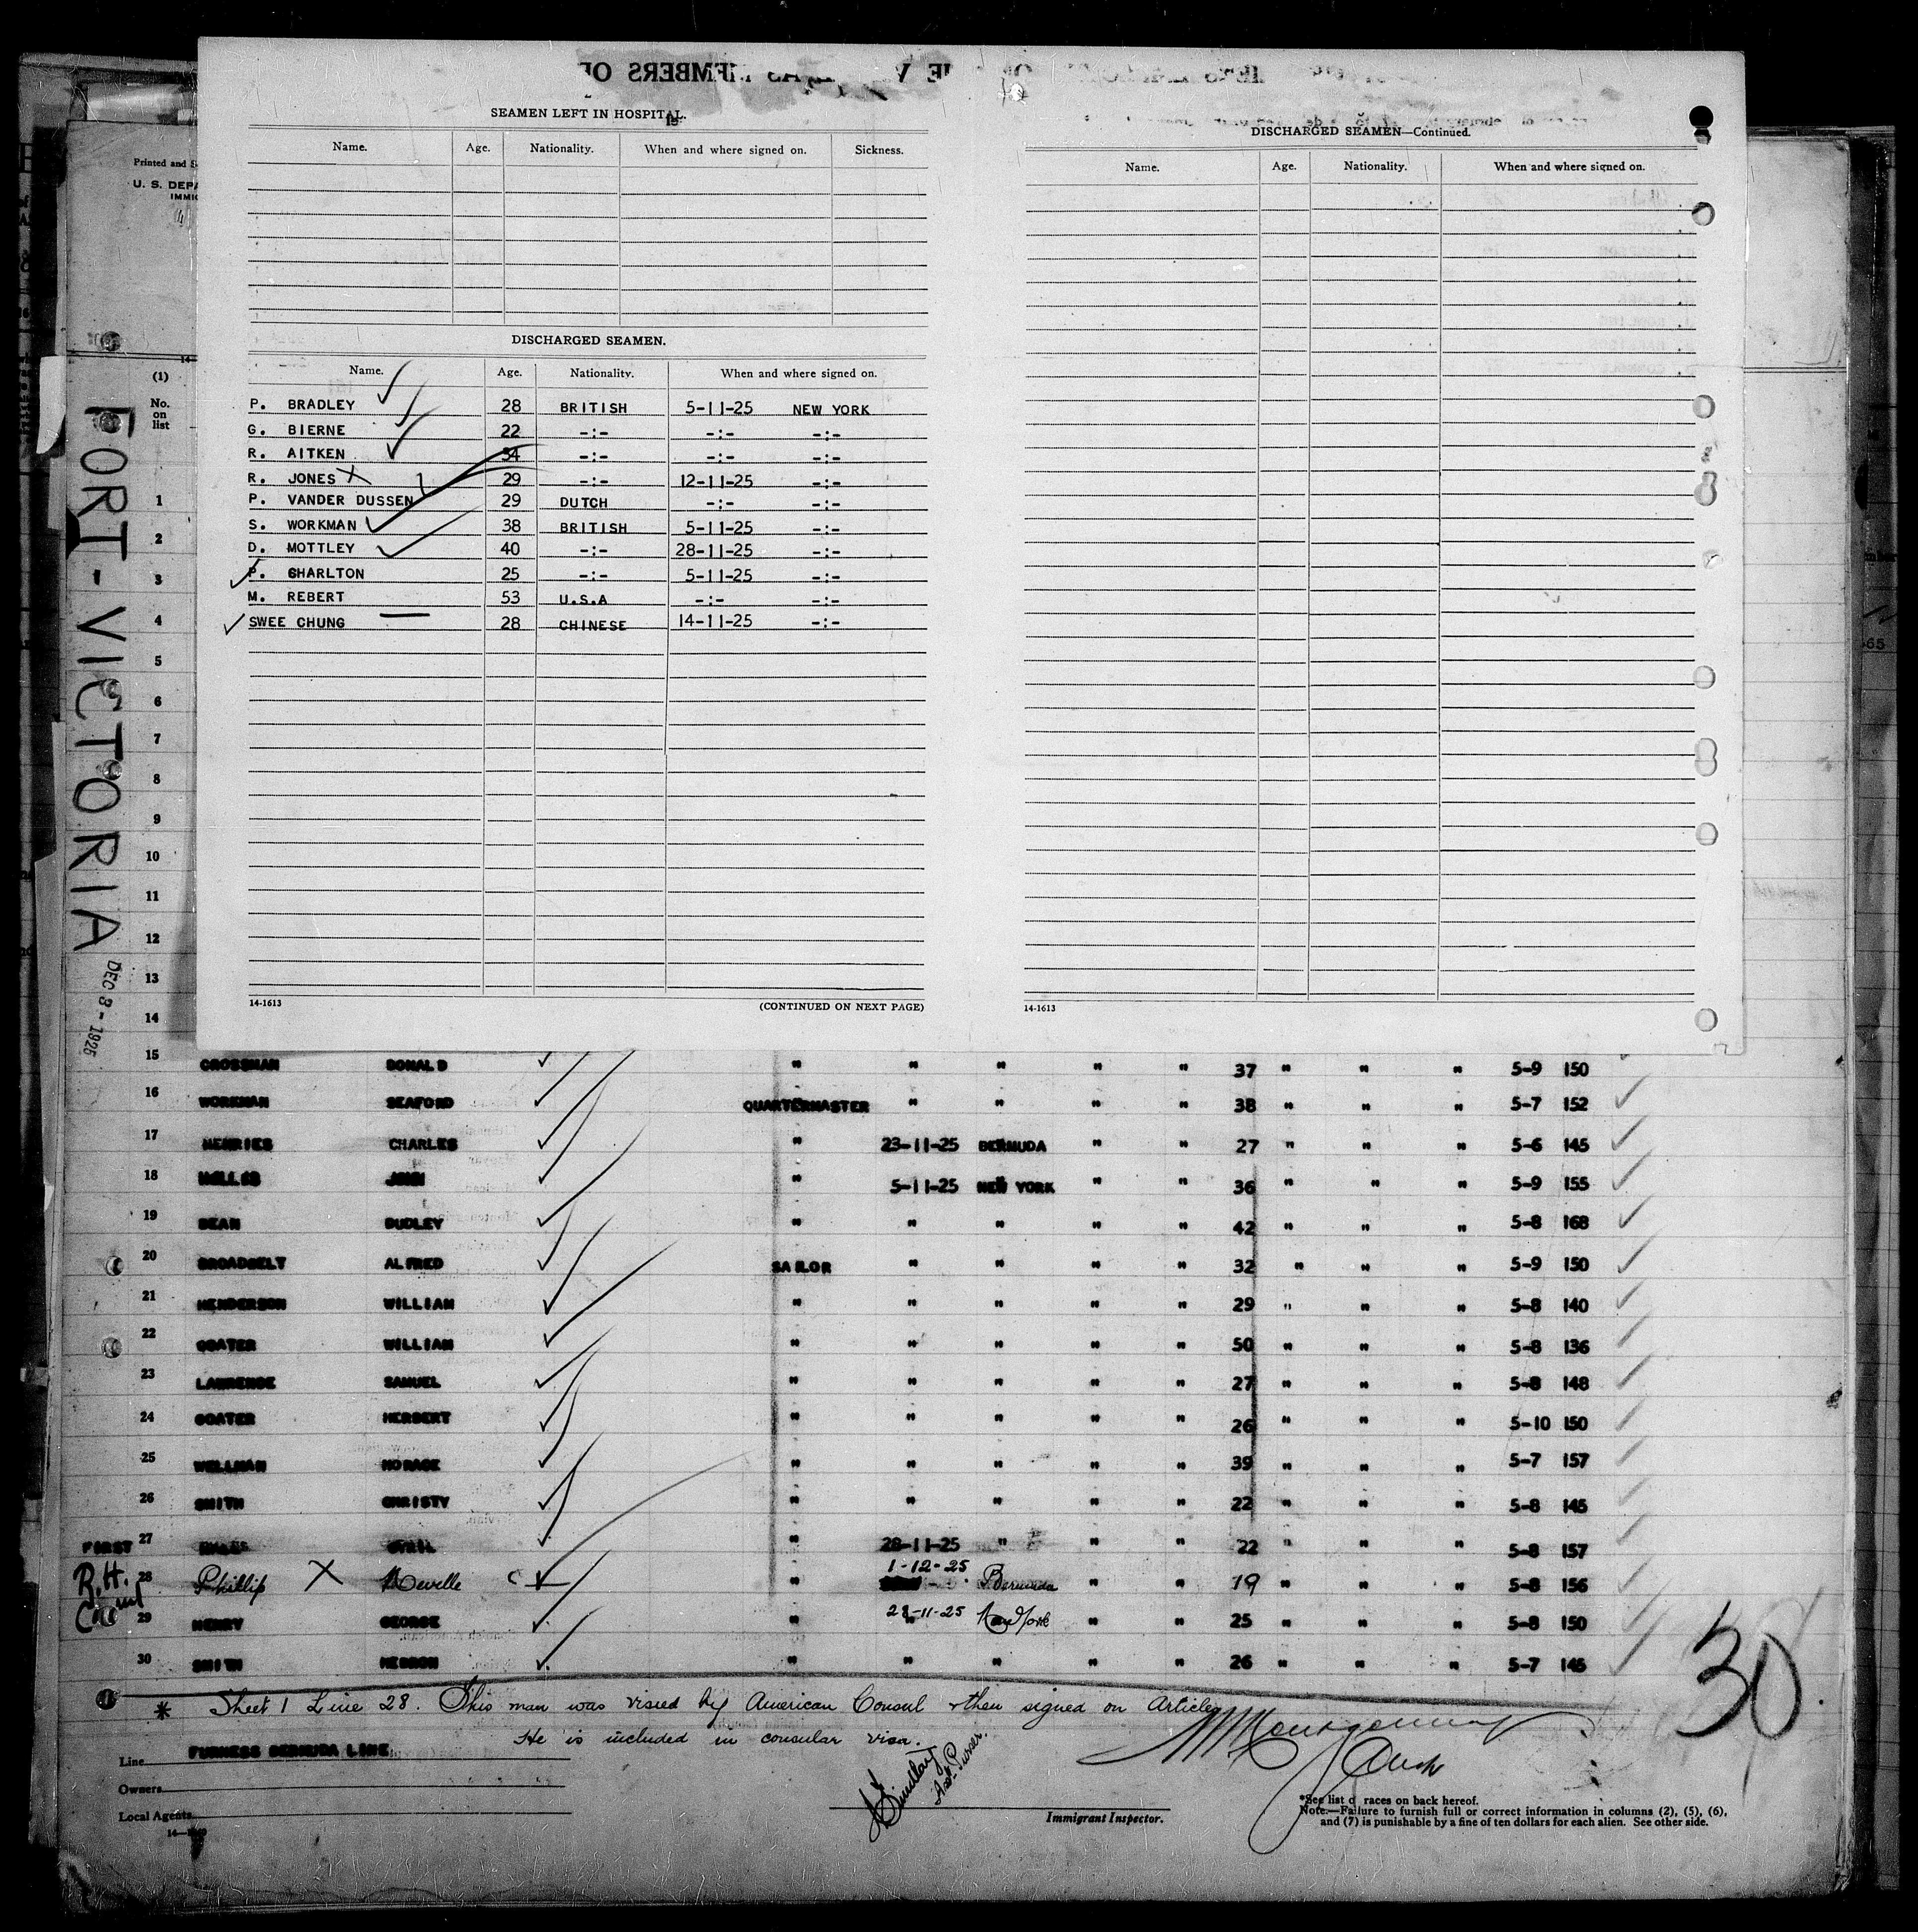 SEAMEN LEFT IN HOSPITAL.
Name. Age. Nationality. When and where signed on. Sickness.
DISCHARGED SEAMEN.
Name. Age. Nationality. When and where signed on.
P. BRADLEY 28 BRITISH 5-11-25 NEW YORK
G. BIERNE 22 -:- -:- -:-
R. AITKEN 34 -:- -:- -:-
R. JONES X 29 -:- 12-11-25 -:-
P. VANDER DUSSEN 29 DUTCH -:- -:-
S. WORKMAN 38 BRITISH 5-11-25 -:-
D. MOTTLEY 40 -:- 28-11-25 -:-
P. CHARLTON 25 -:- 5-11-25 -:-
M. REBERT 53 U.S.A -:- -:-
SWEE CHUNG 28 CHINESE 14-11-25 -:-
14-1613 (CONTINUED ON NEXT PAGE)
DISCHARGED SEAMEN—Continued.
Name. Age. Nationality. When and where signed on.
14-1613
Printed and
U. S. DEPA
IMMIG
(1)
No. on list
FORT-VICTORIA
DEC 8-1925
1
2
3
4
5
6
7
8
9
10
11
12
13
14
15 CROSSMAN DONALD " " " " " 37 " " " 5-9 150
16 WORKMAN SEAFORD QUARTERMASTER " " " " 38 " " " 5-7 152
17 HENRIES CHARLES " 23-11-25 BERMUDA " " 27 " " " 5-6 145
18 HOLLIS JOHN " 5-11-25 NEW YORK " " 36 " " " 5-9 155
19 BEAN DUDLEY " " " " " 42 " " " 5-8 168
20 BROADBELT ALFRED SAILOR " " " " 32 " " " 5-9 150
21 HENDERSON WILLIAM " " " " " 29 " " " 5-8 140
22 COATER WILLIAM " " " " " 50 " " " 5-8 136
23 LAWRENCE SAMUEL " " " " " 27 " " " 5-8 148
24 COATER HERBERT " " " " " 26 " " " 5-10 150
25 WELLMAN HORACE " " " " " 39 " " " 5-7 157
26 SMITH CHRISTY " " " " " 22 " " " 5-8 145
FIRST 27 " 28-11-25 " " " 22 " " " 5-8 157
R.H. 28 Phillip X Nevelle " 1-12-25 Bermuda " " 19 " " " 5-8 156
29 HENRY GEORGE " 28-11-25 New York " " 25 " " " 5-8 150
30 SMITH HEBRON " " " " " 26 " " " 5-7 145
30
* Sheet 1 Line 28. This man was visied by American Consul & then signed on Articles
He is included in consular visa.
Line FURNESS BERMUDA LINE
Owners
Local Agents
Asst. Purser.
Immigrant Inspector.
*See list of races on back hereof.
Note.—Failure to furnish full or correct information in columns (2), (5), (6),
and (7) is punishable by a fine of ten dollars for each alien. See other side.